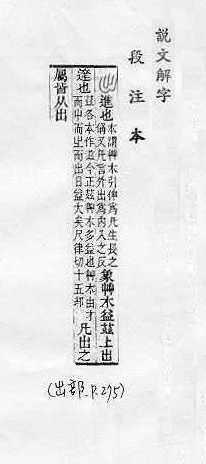 說文解字
段注本
出 進也本謂艸木引伸爲凡生長之偁又凡言外出爲內入之反象艸木益茲上出
達也茲各本作滋今正茲艸木多益也艸木由才而屮而㞢而出日益大矣尺律切十五部凡出之
屬皆从出
(出部 P.275)